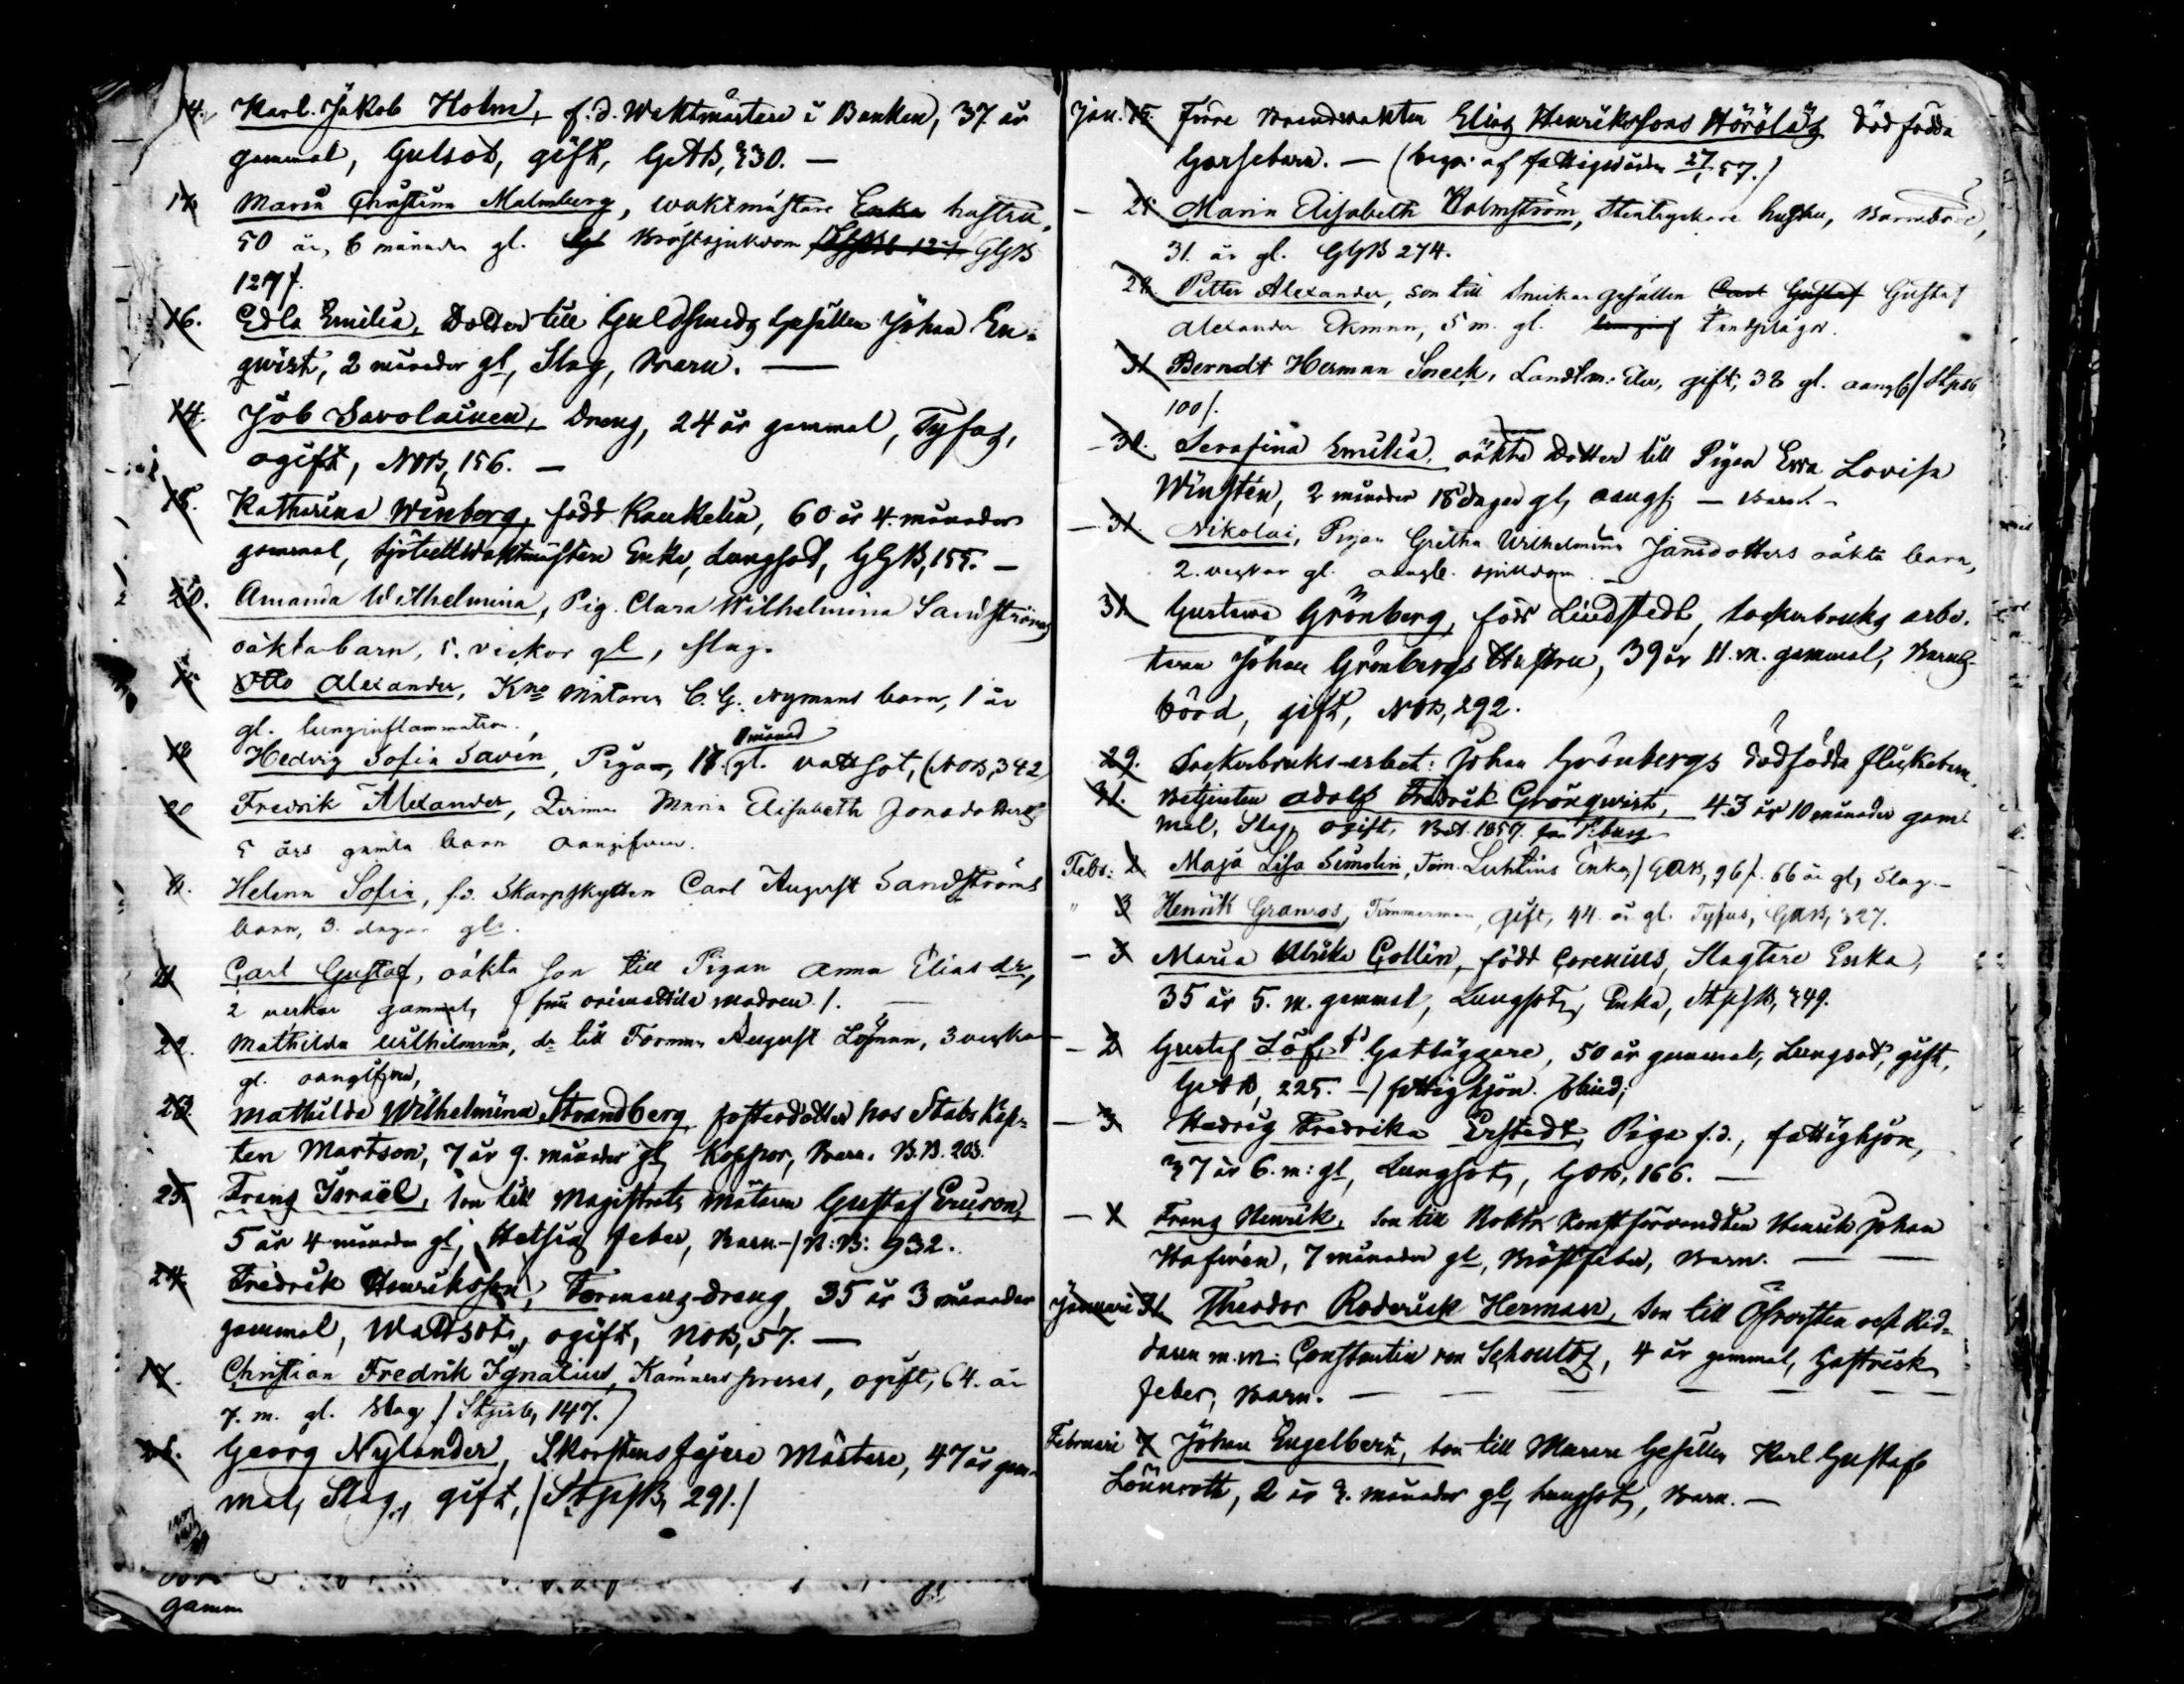 14. Karl Jakob Holm, f.d. Waktmästare i Banken, 37 år
gammal, Gulsot, gift, GAB, 330. —
14 Maria Christina Malmberg, waktmästare Enka hustru,
50 år, 6 månader gl. Bröstsjukdom GGB
127/.
16. Edla Emilia, Dotter till Guldsmeds Gesällen Johan En-
qvist, 2 månader gl, Slag, Barn. —
14. Job Savolainen, Dreng, 24 år gammal, Tyfus,
ogift, NOB, 156. —
15. Katharina Winberg, född Kaukelin, 60 år 4 månader
gammal, Enka, Lungsot, GGB, 155. —
20. Amanda Wilhelmina, Pig. Clara Wilhelmina Sandströms
oäkta barn, 5. vickor gl, slag.
Otto Alexander, C. G. Nymans barn, 1 år
gl. lunginflammation.
18 Hedvig Sofia Savén, Piga, 18 1 månad gl. vattsot, (NOB, 342)
20 Fredrik Alexander, Maria Elisabeth Jonsdotters
5 års gamla barn oangifven.
Helena Sofia, f.d. Skarpskytten Carl August Sandströms
barn, 3. dagar gl.
21 Carl Gustaf, oäkta son till Pigan Anna Eliasdr,
2 veckor gammal, modren /. —
22. Mathilda Wilhelmina, dr till Forman August Löfman, 3 veckor
gl. oangifven,
23. Mathilda Wilhelmina Strandberg, fosterdotter hos Stabs Kap-
ten Martson, 7 år 9. månader gl, Koppor, Barn. B.B. 203.
25. Frans Israël, Son till Magistrats Gustaf Ericson,
5 år 4 månader gl, Hetsig feber, Barn —/ N:B: 932.
24. Fredrik Henriksson, Formans-dreng, 35 år 3 månader
gammal, Wattsot, ogift, NOB, 57. —
17. Christian Fredrik Ignatius, Kämners preses, ogift, 64. år
7. m. gl. Slag / 147.
Georg Nylander, Skorstens fejare Mästare, 47 år gam-
mal, Slag, gift, / 291. /
gamm
Jan. 15. Förre Brandvakten Elias Henrikssons dödfödda
Gossebarn. — ( af fattigvården 27/1 57.)
— 25 Maria Elisabeth Holmström, Stentryckare hustru, Barnbörd,
31. år gl. GGB 274.
28. Petter Alexander, son till Snickargesällen Carl Gustaf Gustaf
Alexander Ekman, 5 m. gl. Tandplågor.
31 Berndt Herman Sneck, Landtm: Elev, gift, 38 gl.
100/.
— 30. Serafina Emilia, oäkta Dotter till Pigan Ewa Lovisa
Winstén, 2 månader 18 dagar gl, oangf. — Barn. —
— 31. Nikolai, Pigan Gretha Wilhelmina Jansdotters oäkta barn,
2. veckor gl. oangb. sjukdom. —
31. Gustava Grönberg, född Lindstedt, Sockerbruks arbe-
taren Johan Grönbergs Hustru, 39 år 11. m. gammal, Barns-
börd, gift, NOB, 292.
29. Sockerbruks-arbet: Johan Grönbergs dödfödda flickebarn.
31. Betjenten Adolf Fredrik Grönqvist, 43 år 10 månader gam-
mal, Slag, ogift, Bet. 1857.
Febr: 2 Maja Lisa Simolin, Tim. Luhtius Enka, / GAB, 96/. 66 år gl, Slag. —
" 3 Henrik Granroos, Timmerman, gift, 44. år gl. Typus, GAB, 327.
— 3 Maria Ulrika Collin, född Corenius, Slagtare Enka,
35 år 5. m. gammal, Lungsot, Enka, 349.
— 2 Gustaf Löf, fd Gatläggare, 50 år gammal, Lungsot, gift,
GAB, 225. —/ fattighjon. blind;
— 3 Hedvig Fredrika Erstedt, Piga f.d., fattighjon,
37 år 6. m: gl, Lungsot, GOB, 166. —
— Frans Henrik, Son till Henrik Johan
Hafvrén, 7 månader gl, Bröstfeber, Barn. —
Januari 31. Theodor Roderick Herman, Son till Öfversten och Rid-
daren m. m. Constantin von Schoultz, 4 år gammal, Gastrisk
feber, Barn. —
Februari 7 Johan Engelbert, son till Murare Gesällen Karl Gustaf
Lönnroth, 2 år 3. månader gl, Lungsot, Barn. —